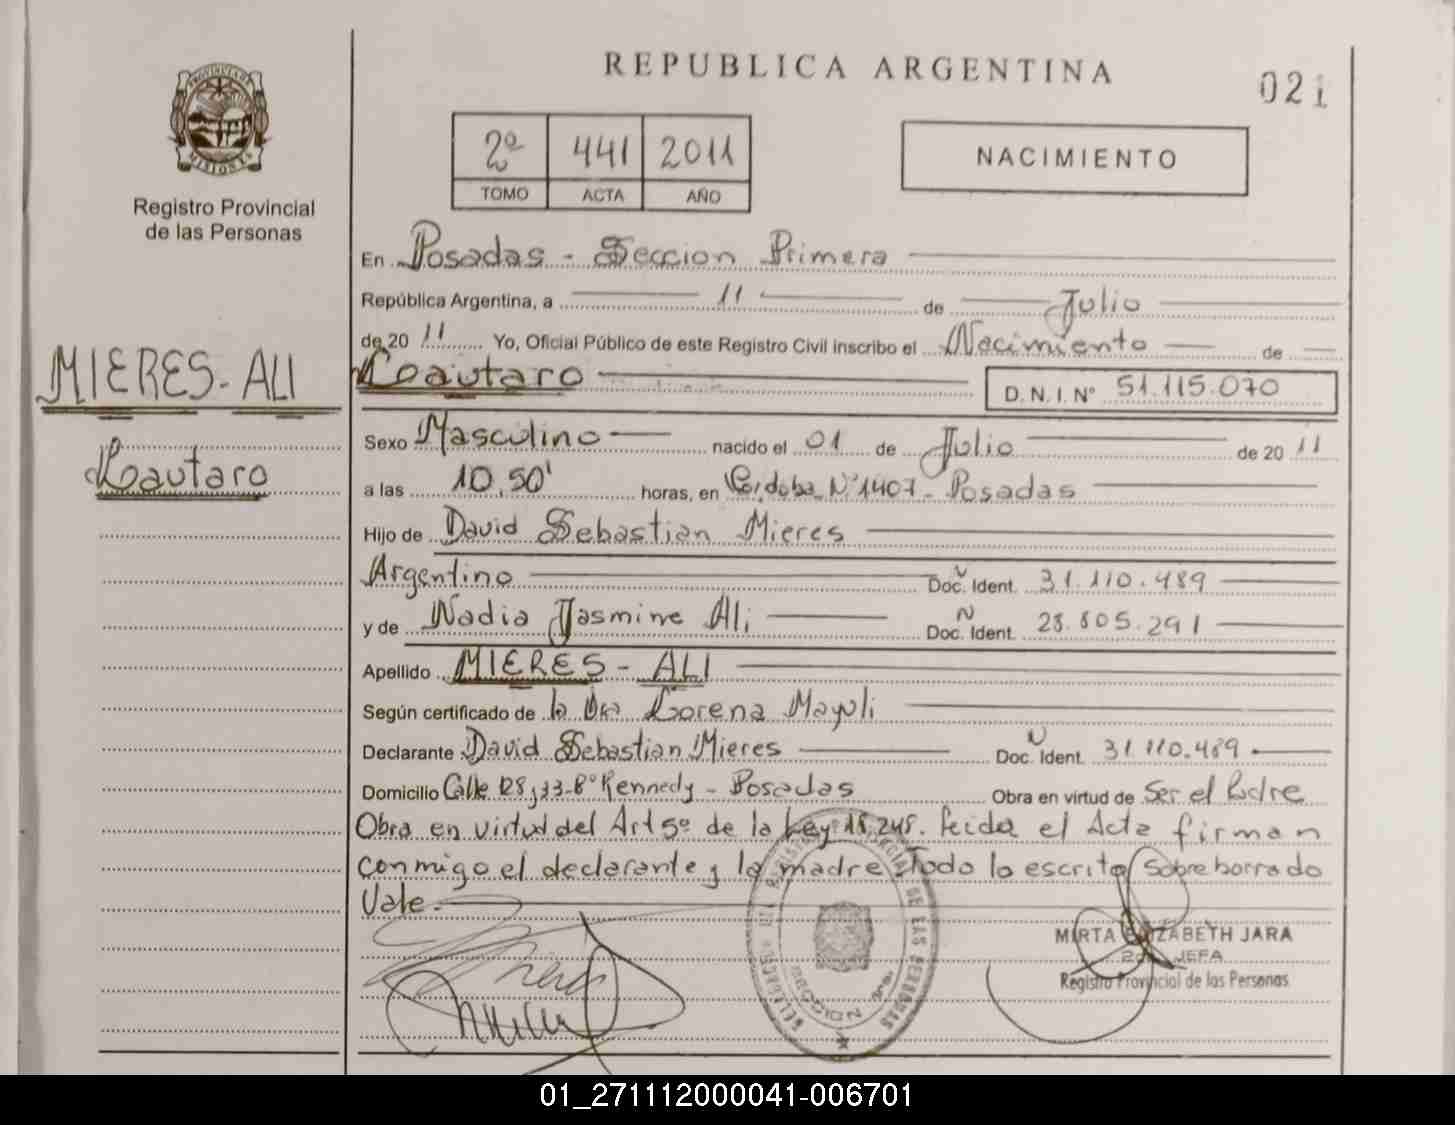 REPUBLICA ARGENTINA
021
2º 441 2011
TOMO ACTA AÑO
NACIMIENTO
PROVINCIA DE MISIONES
Registro Provincial
de las Personas
MIERES-ALI
Lautaro
En Posadas - Seccion Primera
República Argentina, a 11 de Julio
de 20 11 Yo, Oficial Público de este Registro Civil inscribo el Nacimiento de
Lautaro D.N.I. Nº 51.115.070
Sexo Masculino nacido el 01 de Julio de 20 11
a las 10,50' horas, en Córdoba Nº 1407 - Posadas
Hijo de David Sebastian Mieres
Argentino Doc. Ident. 31.110.489
y de Nadia Jasmine Ali N Doc. Ident. 28.805.291
Apellido MIERES - ALI
Según certificado de la Dra Lorena Mayuli
Declarante David Sebastian Mieres N Doc. Ident. 31.110.489
Domicilio Calle 128 y 33-Bº Kennedy - Posadas Obra en virtud de Ser el Padre
Obra en virtud del Art 5º de la Ley 18,248. Leida el Acta firman
conmigo el declarante y la madre Todo lo escrito Sobreborrado
Vale.-
MIRTA ELIZABETH JARA
JEFA
Registro Provincial de las Personas
01_271112000041-006701